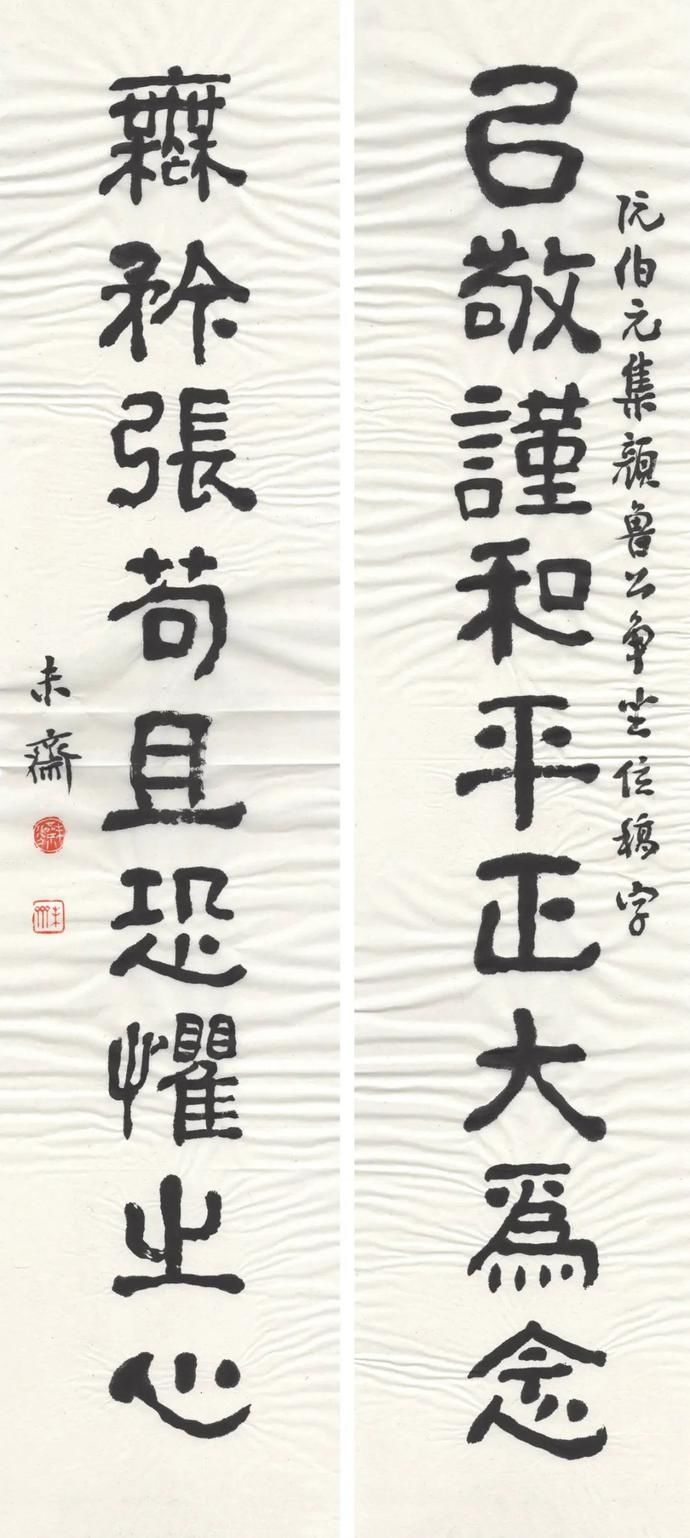 阮伯元集顏魯公争坐位稿字
㠯敬謹和平正大爲念
無矜張苟且恐懼之心
未齋